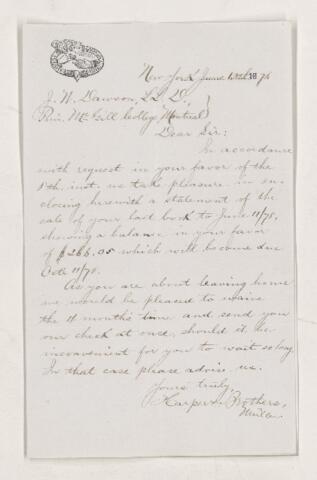 New York June 13th 1876
J. W. Dawson, LL D,
Prin. Mc Gill College Montreal
Dear Sir:
In accordance
with request in your favor of the
8th. inst. we take pleasure in en-
closing herewith a statement of the
sale of your last book to June 11/76,
showing a balance in your favor
of $266.05 which will become due
Oct. 11/76.
As you are about leaving home
we would be pleased to waive
the 4 month's time and send you
our check at once, should it be
inconvenient for you to wait so long
In that case please advise us.
Yours truly,
Harper & Brothers,